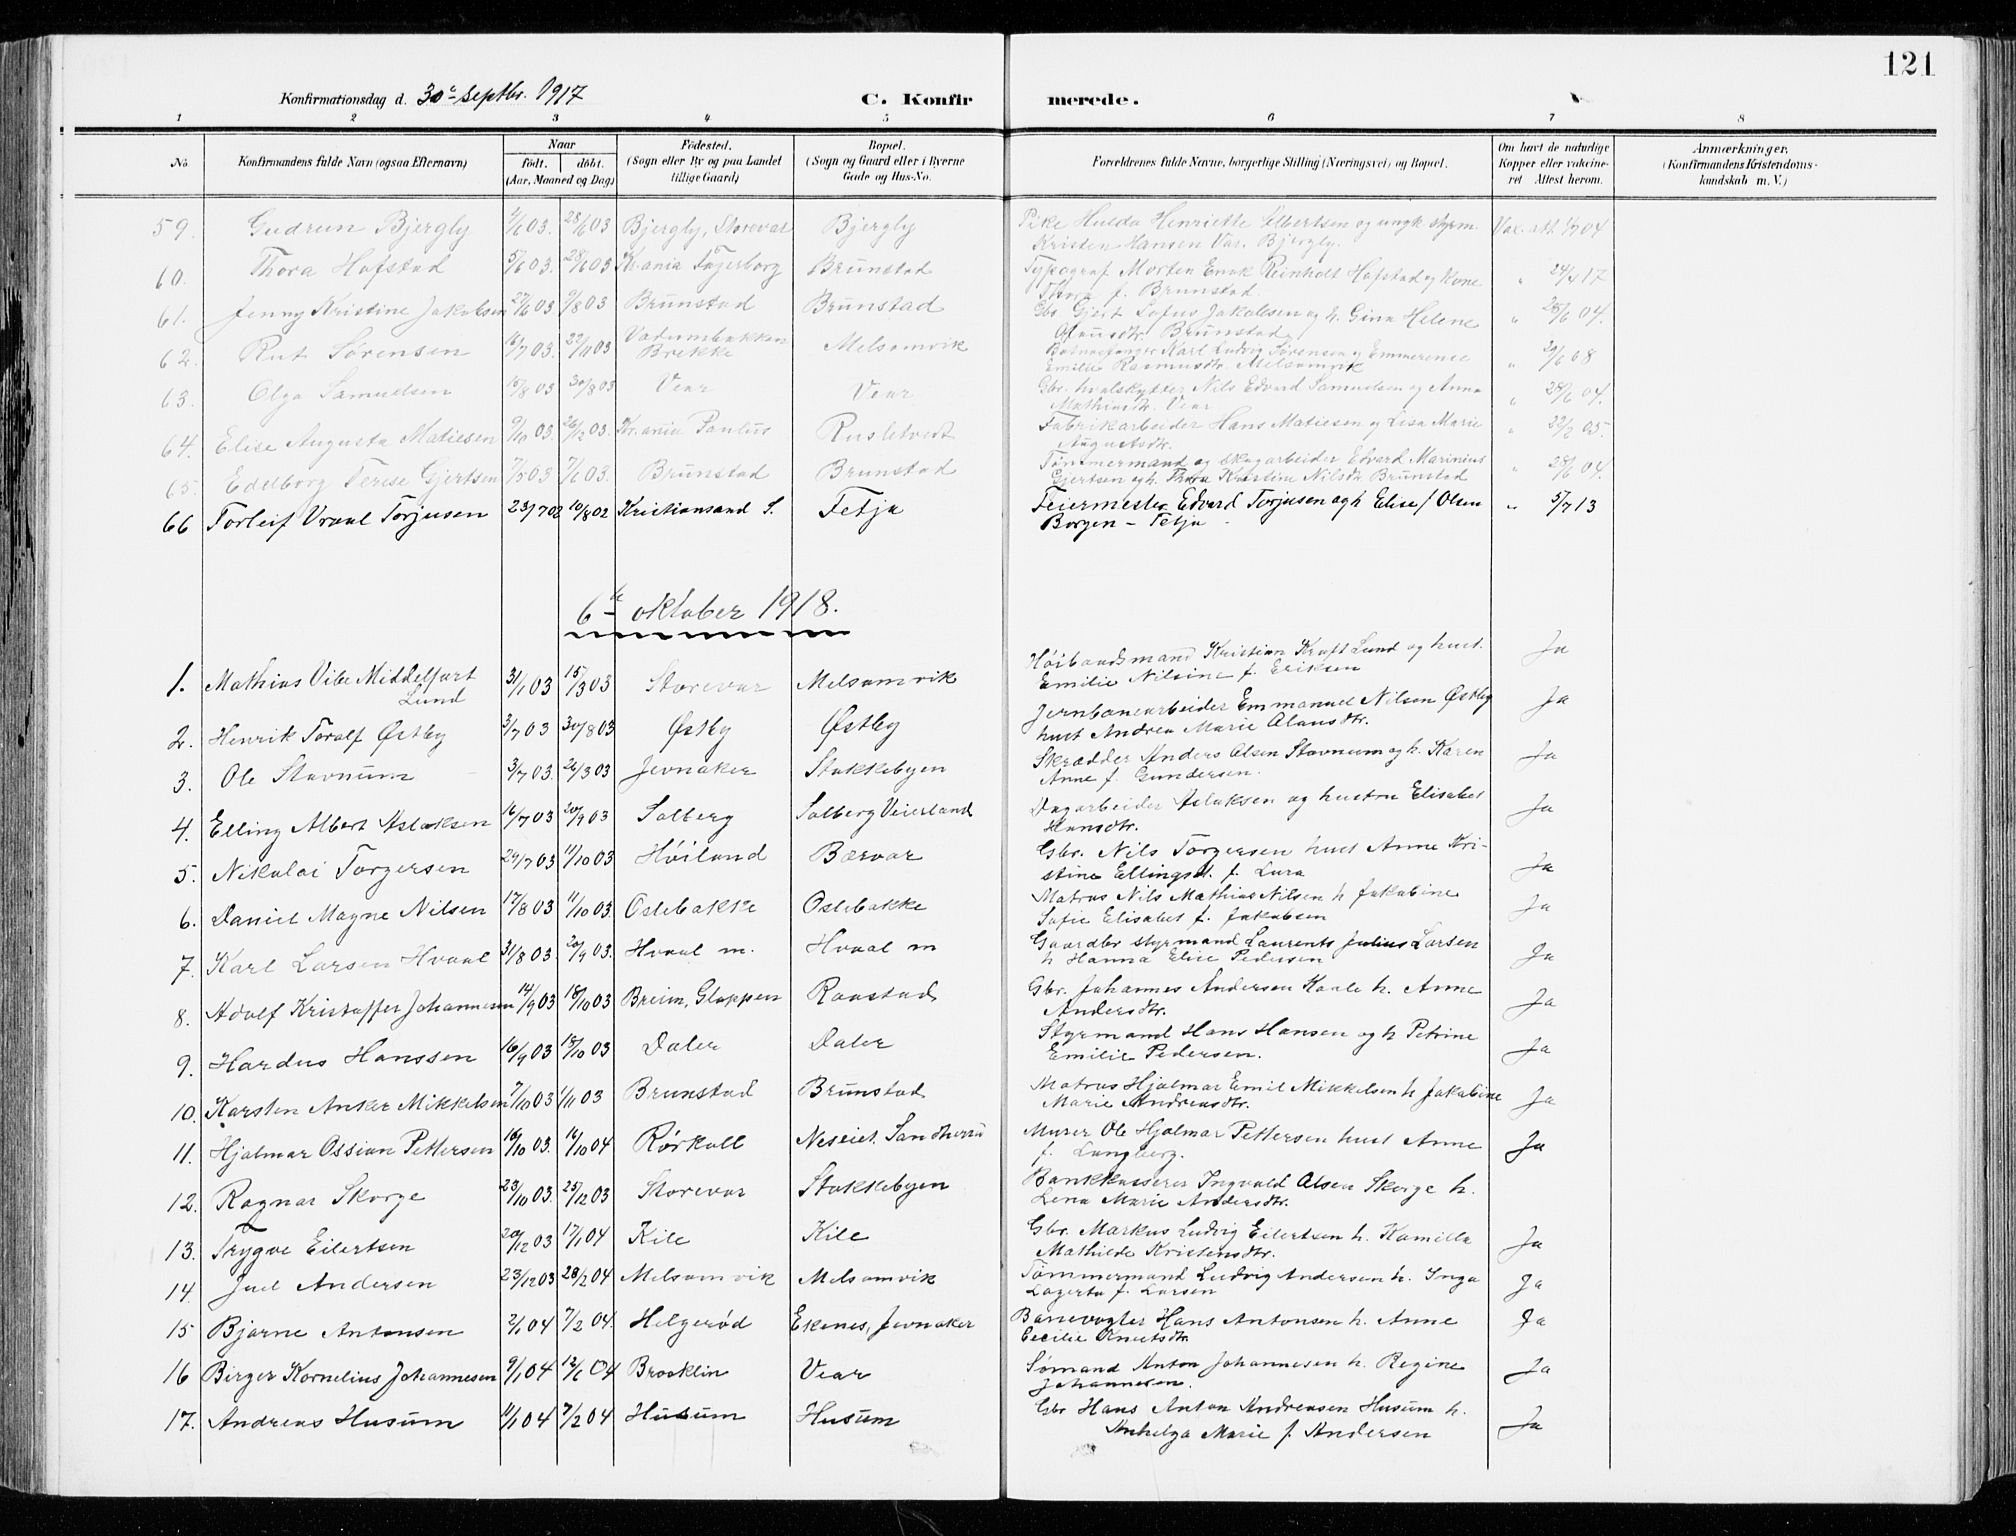 121
Konfirmationsdag d. 30te septbr. 1917 C. Konfirmerede.
1 2 3 4 5 6 7 8
No. Konfirmandens fulde Navn (ogsaa Efternavn) Naar født. døbt. (Aar, Maaned og Dag) Fødested. (Sogn eller By og paa Landet tillige Gaard) Bopæl. (Sogn og Gaard eller i Byerne Gade og Hus-No. Forældrenes fulde Navne, borgerlige Stilling (Næringsvei) og Bopæl. Om havt de naturlige Kopper eller vaccineret. Attest herom. Anmærkninger, (Konfirmandens Kristendomskundskab m. V.)
59. Gudrun Bjergly 4/6 03. 28/6 03 Bjergly, Storevar Bjergly Pike Hulda Henriette Elbertsen og ungk styrm. Vac. att. 1/7 04
Kristen Hansen Var. Bjergly.
60. Thora Hofstad 5/6 03. 28/6 03 Kr.ania Fagerborg Brunstad Typograf Morten Emk Reinholt Hofstad og Kone " 24/4 17
Thora f. Brunstad.
61. Jenny Kristine Jakobsen 27/6 03 9/8 03 Brunstad Brunstad Gbr Gjert Lofus Jakobsen og h. Gina Helene " 28/6 04.
Olausdtr. Brunstad
62. Rut Sørensen 16/7 03. 22/11 03 Vadumbakken Brekke Melsomvik Karl Ludvig Sørensen og Emmerence " 20/6 08
Emilie Rasmusdtr. Melsomvik
63. Olga Samuelsen 15/8 03 30/8 03 Vear Vear Gbr. hvalskytter Nils Edvard Samuelsen og Anna " 28/6 04.
Mathiasdtr. Vear
64. Elise Augusta Matiesen 9/10 03. 26/12 03. Kr.ania Paulus Rusletvedt Fabrikarbeider Hans Matiesen og Lisa Marie " 22/2 05.
Augustsdtr.
65. Edelborg Terese Gjertsen 7/5 03 7/6 03. Brunstad Brunstad Tømmermand og skogarbeider Edvard Marinius " 28/6 04.
Gjertsen og h. Thora Kristine Nilsdtr Brunstad
66 Torleif Vraal Torjusen 23/7 02 10/8 02 Kristiansand S. Fetja Feiermester Edvard Torjusen og h Elise f Olsen " 5/7 13
Borgen – Fetja
6te oktober 1918.
1. Mathias Vibe Middelfart Lund 31/1 03 15/3 03 Storevar Melsomvik Høibaadsmand Kristian Kraft Lund og hust. Ja
Emilie Nilsine f. Eriksen
2. Henrik Toralf Østby 3/7 03 30/8 03 Østby Østby Jernbanearbeider Emmanuel Nilsen Østby Ja
hust Andrea Marie Olausdtr.
3. Ole Stavnum 3/7 03. 26/3 03 Jevnaker Stokkebyen Skrædder Anders Olsen Stavnum og h. Karen Ja
Anne f. Gundersen.
4. Elling Albert Aslaksen 16/7 03 20/9 03 Solberg Solberg Veierland Dagarbeider Aslaksen og hustru Elisabet Ja
Hansdtr.
5. Nikolai Torgersen 29/7 03 11/10 03 Høiland Bærvar Gbr. Nils Torgersen hust Anne Kri- Ja
stine Ellingsd. f. Lura
6. Daniel Magne Nilsen 17/8 03 11/10 03. Oslebakke Oslebakke Matros Nils Mathias Nilsen h Jakobine Ja
Sofie Elisabet f. Jakobsen
7. Karl Larsen Hvaal 31/8 03. 20/9 03. Hvaal m. Hvaal m Gaardbr styrmand Laurents Julius Larsen Ja
h Hanna Elise Pedersen
8. Adolf Kristoffer Johannesen 14/9 03 18/10 03 Breim, Gloppen Raastad Gbr. Johannes Andersen Kaale h. Anne Ja
Andersdtr.
9. Hardus Hanssen 16/9 03 18/10 03 Daler Daler Styrmand Hans Hansen og h Petrine Ja
Emilie Pedersen.
10. Karsten Anker Mikkelsen 7/10 03 1/11 03 Brunstad Brunstad Matros Hjalmar Emil Mikkelsen h Jakobine Ja
Marie Andreasdtr.
11. Hjalmar Ossian Pettersen 16/10 03. 16/10 04 Rørkoll Neseiet, Sandherred Murer Ole Hjalmar Pettersen hust Anne Ja
f. Langberg.
12. Ragnar Skorge 23/10 03. 25/12 03 Storevar Stokkebyen Bankkasserer Ingvald Olsen Skorge h.
Lena Marie Andersdtr.
13. Trygve Eilertsen 20/12 03 17/1 04 Kile Kile Gbr. Markus Ludvig Eilertsen h. Kamilla Ja
Mathilde Kristensdtr.
14. Juel Andersen 23/12 03 28/2 04 Melsomvik Melsomvik Tømmermand Ludvig Andersen h. Inga Ja
Lagerta f. Larsen
15 Bjarne Antonsen 2/1 04 7/2 04. Helgerød Ekenes, Jevnaker Banevogter Hans Antonsen h. Anne Ja
Cecilie Knutsdtr
16 Birger Kornelius Johannesen 9/1 04 12/6 04 Brooklin Vear Sømand Anton Johannesen h. Regine Ja
Johannesen.
17. Andreas Husum 11/1 04 7/2 04 Husum Husum Gbr Hans Anton Andreasen Husum h. Ja
Anhelga Marie f. Andersen